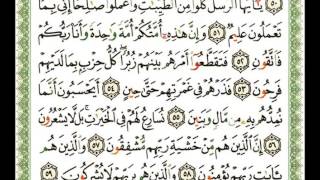 يَٰٓأَيُّهَا ٱلرُّسُلُ كُلُوا۟ مِنَ ٱلطَّيِّبَٰتِ وَٱعْمَلُوا۟ صَٰلِحًا إِنِّى بِمَا
تَعْمَلُونَ عَلِيمٌ ٥١ وَإِنَّ هَٰذِهِۦٓ أُمَّتُكُمْ أُمَّةً وَٰحِدَةً وَأَنَا۠ رَبُّكُمْ
فَٱتَّقُونِ ٥٢ فَتَقَطَّعُوٓا۟ أَمْرَهُم بَيْنَهُمْ زُبُرًا كُلُّ حِزْبٍۭ بِمَا لَدَيْهِمْ
فَرِحُونَ ٥٣ فَذَرْهُمْ فِى غَمْرَتِهِمْ حَتَّىٰ حِينٍ ٥٤ أَيَحْسَبُونَ أَنَّمَا
نُمِدُّهُم بِهِۦ مِن مَّالٍ وَبَنِينَ ٥٥ نُسَارِعُ لَهُمْ فِى ٱلْخَيْرَٰتِ بَل لَّا يَشْعُرُونَ
٥٦ إِنَّ ٱلَّذِينَ هُم مِّنْ خَشْيَةِ رَبِّهِم مُّشْفِقُونَ ٥٧ وَٱلَّذِينَ هُم
بِـَٔايَٰتِ رَبِّهِمْ يُؤْمِنُونَ ٥٨ وَٱلَّذِينَ هُم بِرَبِّهِمْ لَا يُشْرِكُونَ ٥٩